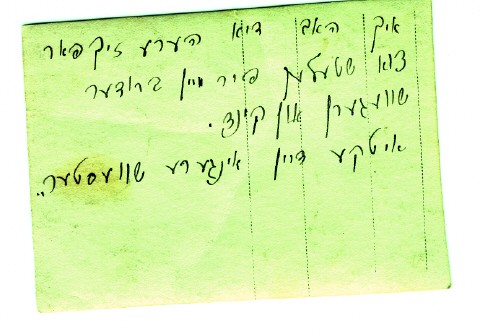 איך האב דיא הערע זיך פאר
צוא שטעלען פיר מיין ברודער
שוועגערן און קינד.
איטקע דיין אינגערע שוועסטער"